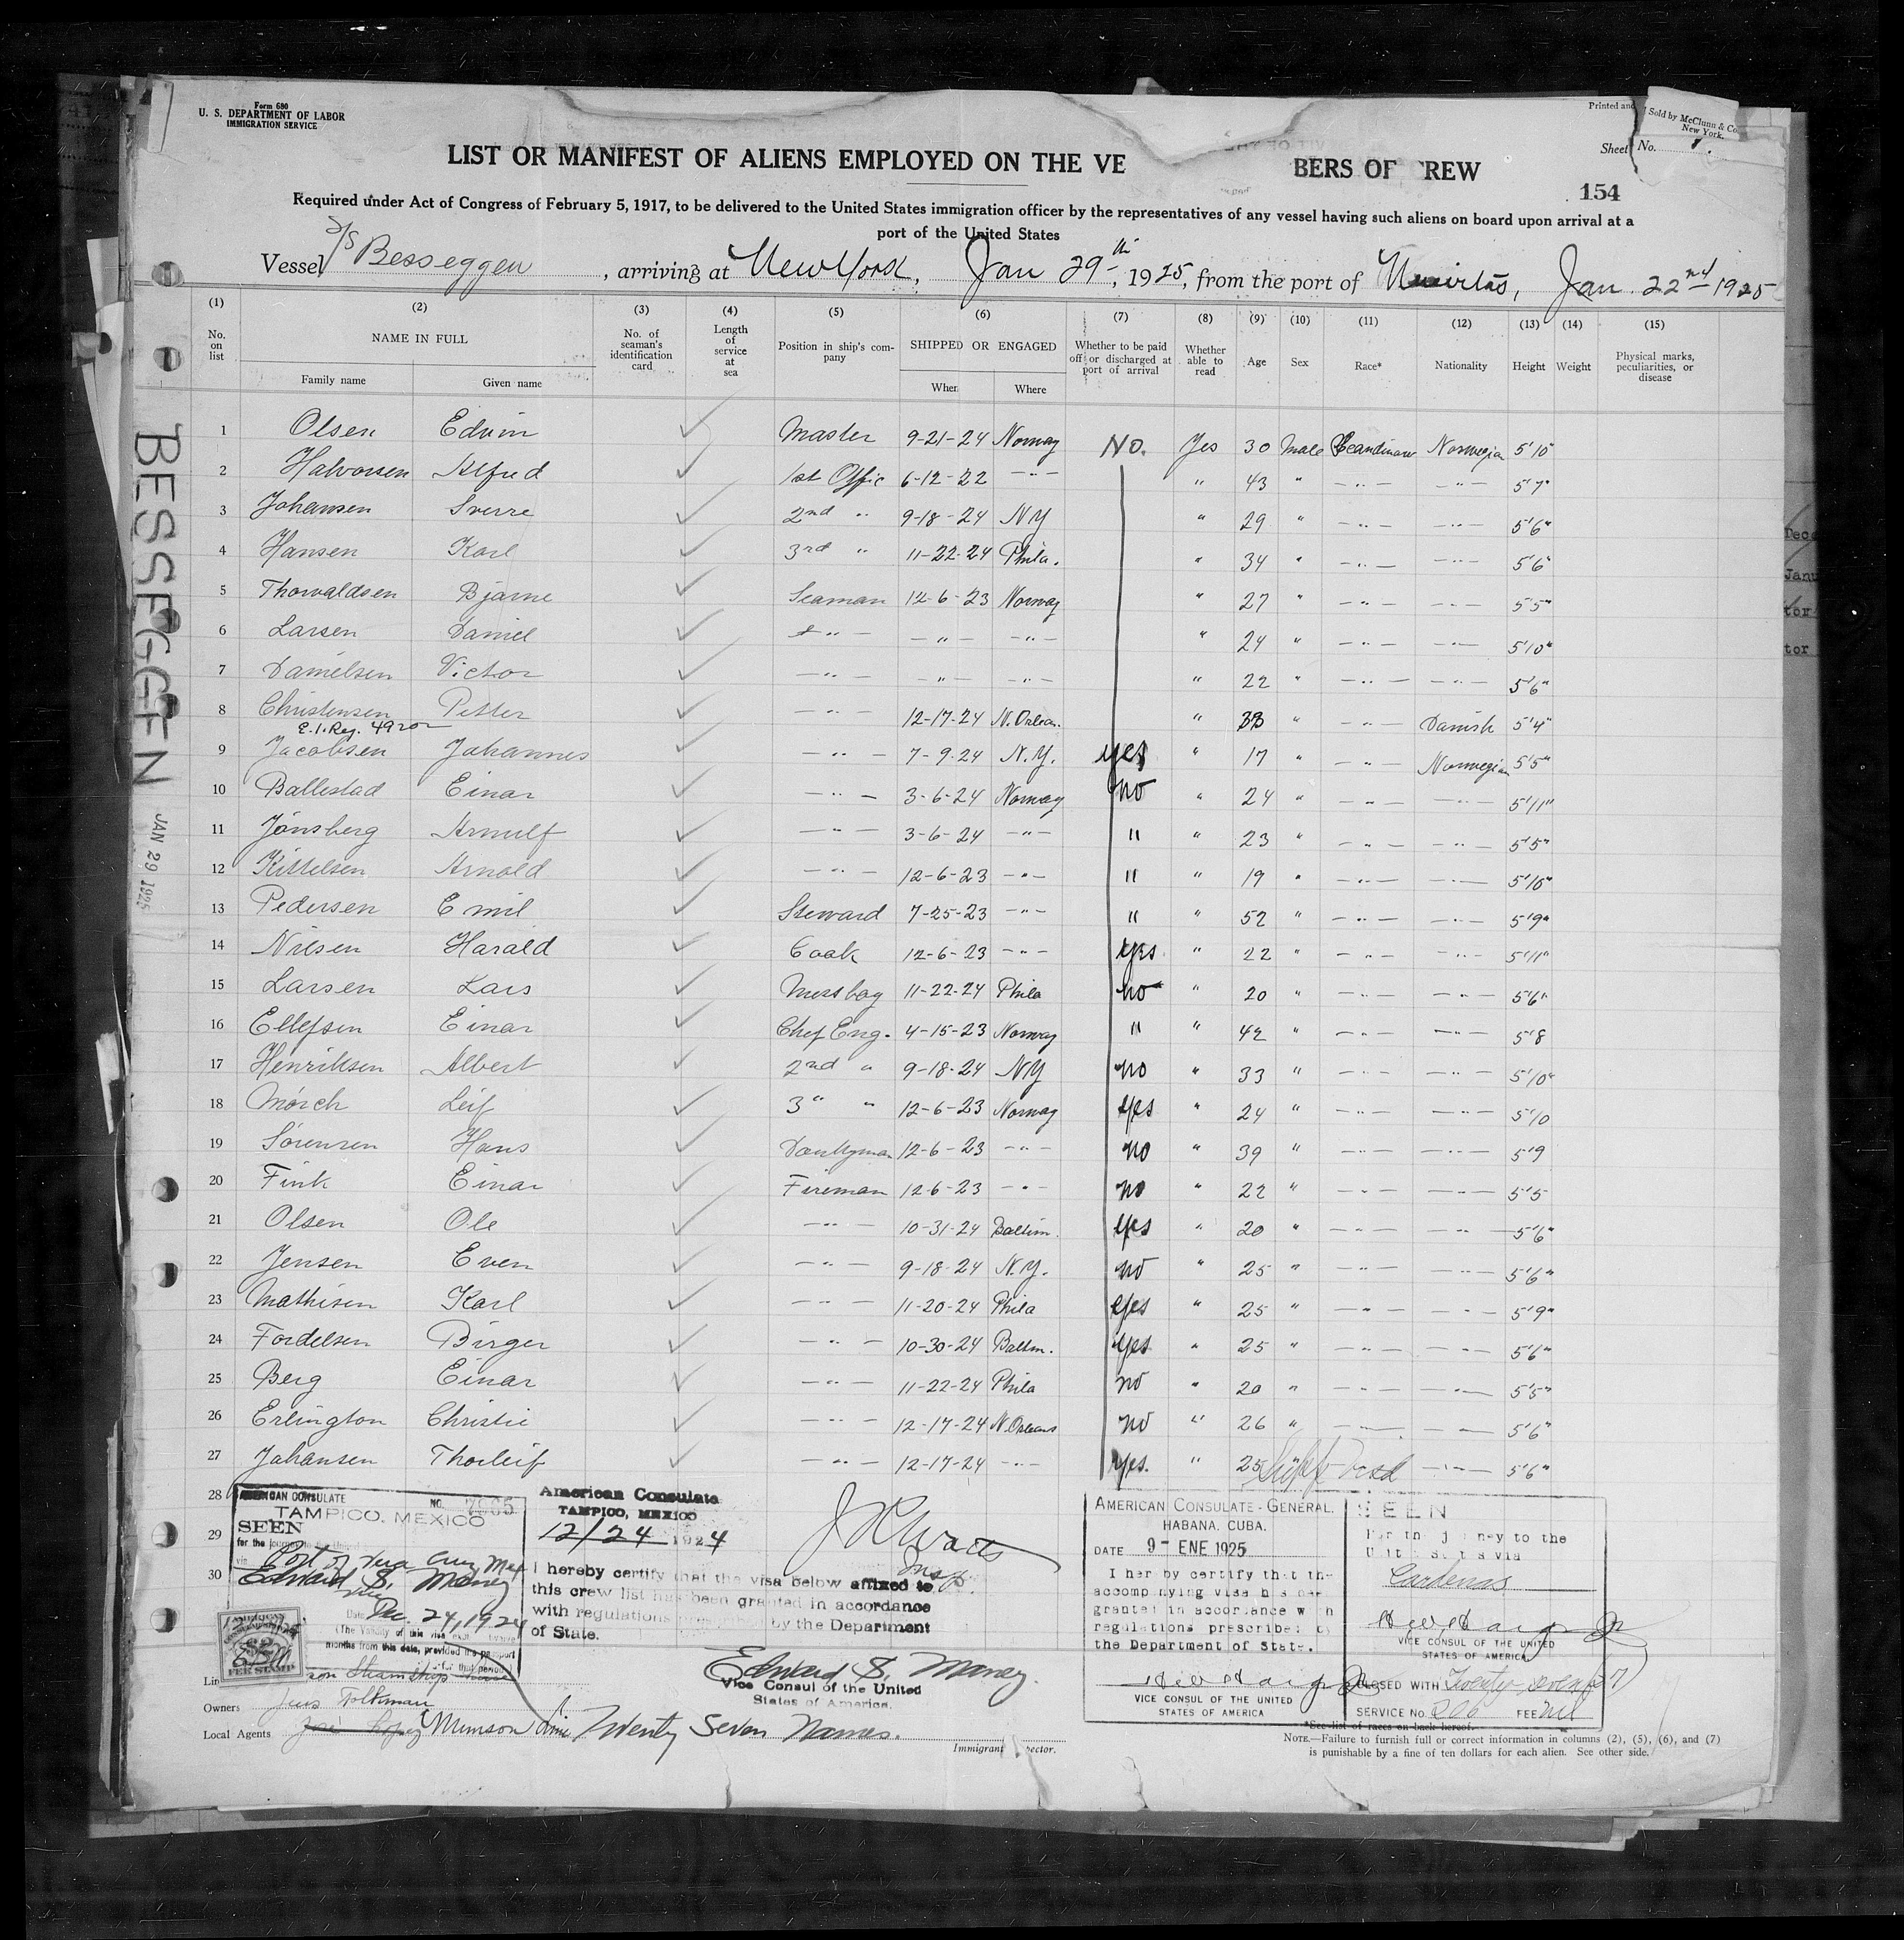 Form 680
U. S. DEPARTMENT OF LABOR
IMMIGRATION SERVICE
Printed and Sold by McClunn & Co.
New York.
Sheet No. 1.
LIST OR MANIFEST OF ALIENS EMPLOYED ON THE VE BERS OF REW
154
Required under Act of Congress of February 5, 1917, to be delivered to the United States immigration officer by the representatives of any vessel having such aliens on board upon arrival at a
port of the United States
Vessel S/S Besseggen, arriving at New York, Jan 29th, 1925, from the port of Nuevitas, Jan. 22nd 1925
(1) (2) (3) (4) (5) (6) (7) (8) (9) (10) (11) (12) (13) (14) (15)
No. on list
NAME IN FULL
Family name
Given name
No. of seaman's identification card
Length of service at sea
Position in ship's company
SHIPPED OR ENGAGED
When
Where
Whether to be paid off or discharged at port of arrival
Whether able to read
Age
Sex
Race*
Nationality
Height
Weight
Physical marks, peculiarities, or disease
1 Olsen Edvin Master 9-21-24 Norway No. Yes 30 Male Scandinav Norwegian 5'10
2 Halvorsen Alfred 1st Offic 6-12-22 —"— " 43 " —"— —"— 5'7"
3 Johansen Sverre 2nd " 9-18-24 NY " 29 " —"— —"— 5'6"
4 Hansen Karl 3rd " 11-22-24 Phila. " 34 " —"— —"— 5'6"
5 Thorvaldsen Bjarne Seaman 12-6-23 Norway " 27 " —"— —"— 5'5"
6 Larsen Daniel —"— —"— —"— " 24 " —"— —"— 5'10"
7 Danielsen Victor —"— —"— —"— " 22 " —"— —"— 5'6"
8 Christensen Petter —"— 12-17-24 N. Orlean. " 33 " —"— Danish 5'4"
E.I. Reg. 4920
9 Jacobsen Johannes —"— 7-9-24 N.Y. yes " 17 " —"— Norwegian 5'5"
10 Ballestad Einar —"— 3-6-24 Norway no " 24 " —"— —"— 5'11"
11 Jónsberg Arnulf —"— 3-6-24 —"— " " 23 " —"— —"— 5'5"
12 Kittelsen Arnold —"— 12-6-23 —"— " " 19 " —"— —"— 5'10"
13 Pedersen Emil Steward 7-25-23 —"— " " 52 " —"— —"— 5'9"
14 Nilsen Harald Cook 12-6-23 —"— yes " 22 " —"— —"— 5'11"
15 Larsen Lars Messboy 11-22-24 Phila no " 20 " —"— —"— 5'6"
16 Ellefsen Einar Chef Eng. 4-15-23 Norway " " 42 " —"— —"— 5'8
17 Henriksen Albert 2nd " 9-18-24 NY no " 33 " —"— —"— 5'10"
18 Mórch Leif 3" " 12-6-23 Norway yes " 24 " —"— —"— 5'10
19 Sörensen Hans Donkyman 12-6-23 —"— no " 39 " —"— —"— 5'9
20 Fink Einar Fireman 12-6-23 —"— no " 22 " —"— —"— 5'5
21 Olsen Ole —"— 10-31-24 Baltim. yes " 20 " —"— —"— 5'6"
22 Jensen Even —"— 9-18-24 N.Y. no " 25 " —"— —"— 5'6"
23 Mathisen Karl —"— 11-20-24 Phila yes " 25 " —"— —"— 5'9"
24 Fordelsen Birger —"— 10-30-24 Baltim. yes " 25 " —"— —"— 5'6"
25 Berg Einar —"— 11-22-24 Phila no " 20 " —"— —"— 5'5"
26 Erlington Christie —"— 12-17-24 N. Orleans no " 26 " —"— —"— 5'6"
27 Johansen Thorleif —"— 12-17-24 —"— Yes. " 25 —"— 5'6"
28
29
30
BESSEGGEN
JAN 29 1925
AMERICAN CONSULATE
TAMPICO, MEXICO
NO.
SEEN
for the journey to the United
via Port of Vera Cruz Mex
Edward S. Maney
Date Dec. 24, 1924
(The validity of this visa
months from this date, provided
for that period
PER STAMP
American Consulate
TAMPICO, MEXICO
12/24 1924
I hereby certify that the visa below affixed to
this crew list has been granted in accordance
with regulations prescribed by the Department
of State.
Edward S. Maney.
Vice Consul of the United
States of America.
Insp.
AMERICAN CONSULATE-GENERAL,
HABANA, CUBA.
DATE 9- ENE 1925
I hereby certify that the
accompanying visa has been
granted in accordance with
regulations prescribed by
the Department of State.
VICE CONSUL OF THE UNITED
STATES OF AMERICA
SEEN
For the journey to the
United States via
Cardenas
VICE CONSUL OF THE UNITED
STATES OF AMERICA
CLOSED WITH Twenty seven (27)
SERVICE No. 206 FEE Nil
Line Steamship
Owners Jens
Local Agents José Lopez Munson Line Twenty Seven Names.
Immigrant Inspector.
*See list of races on back hereof.
NOTE.—Failure to furnish full or correct information in columns (2), (5), (6), and (7)
is punishable by a fine of ten dollars for each alien. See other side.
Dece
Janu
tor
tor